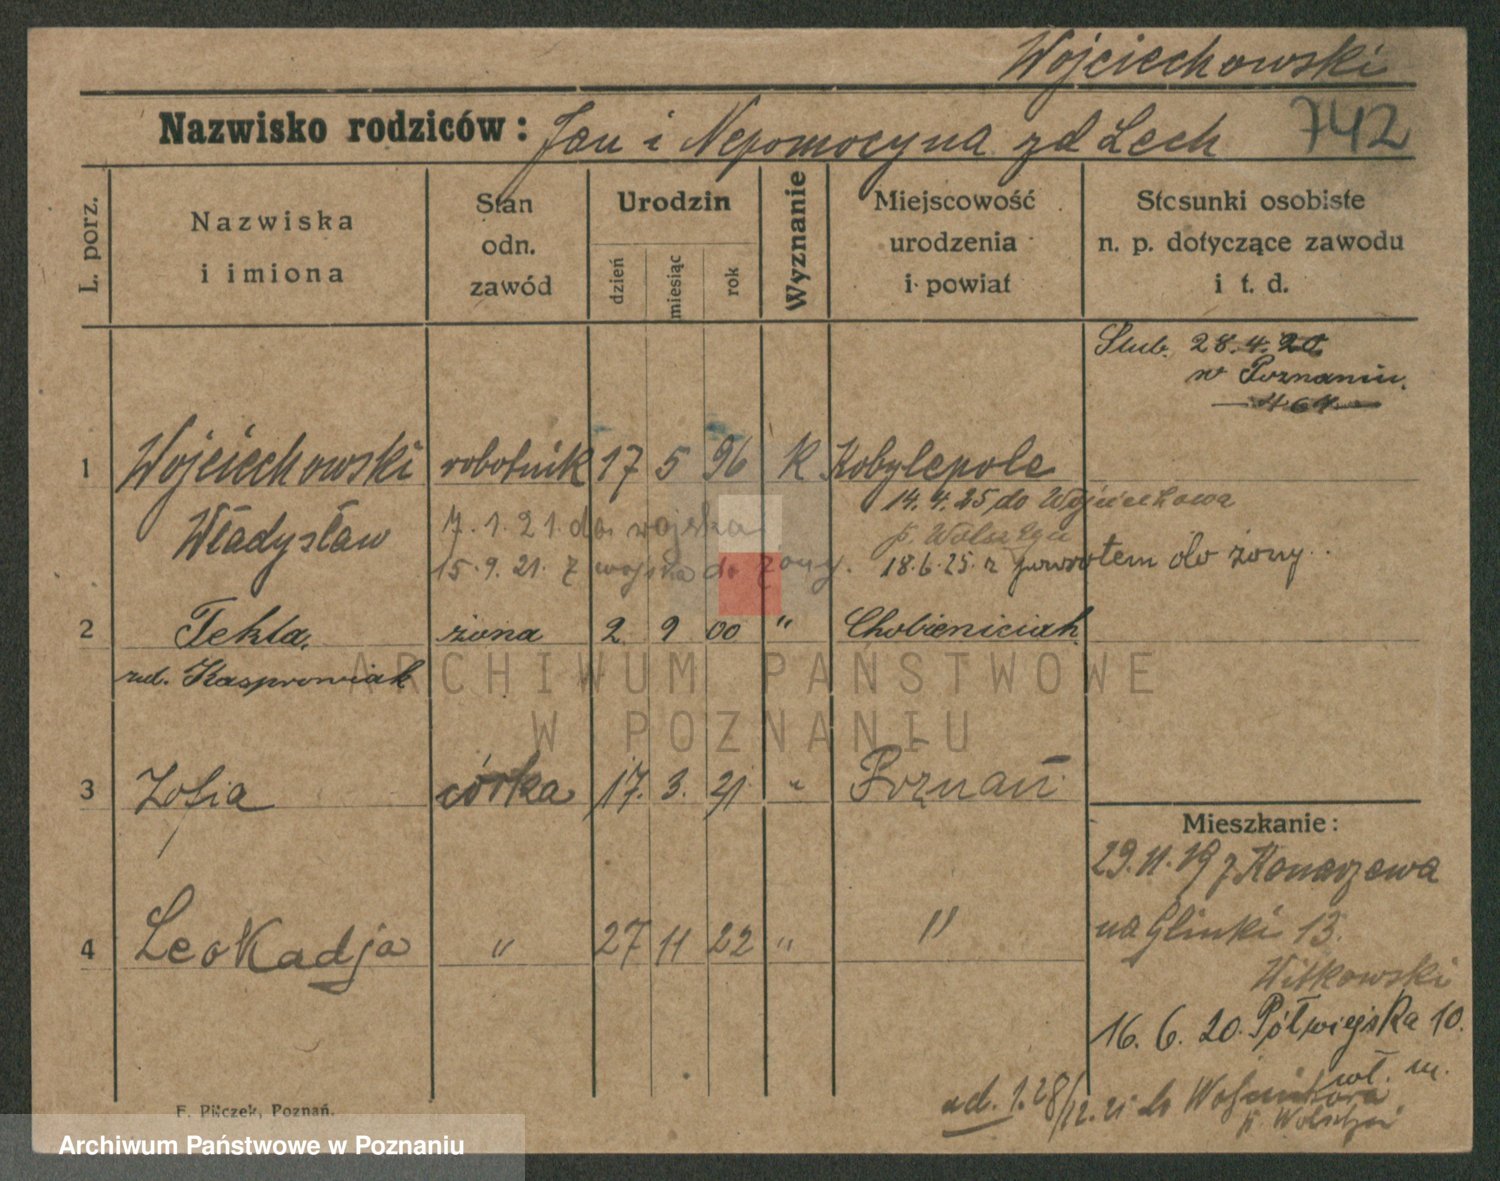 Wojciechowski
Nazwisko rodziców: Jan i Nepomocyna zd Lech 742
L. porz.
Nazwiska i imiona
Stan odn. zawód
Urodzin
dzień miesiąc rok
Wyznanie
Miejscowość urodzenia i powiat
Stosunki osobiste n. p. dotyczące zawodu i t. d.
Slub. 28.4.20
w Poznaniu.
464
1 Wojciechowski robotnik 17 5 96 K Kobylepole
14.4.25 do Wojciechowa
Władysław 7.1.21. do wojska
p. Wolsztyn
15.9.21. z wojska do żony. 18.6.25 z powrotem do żony..
2 Tekla, żona 2 9 00 " Chobieniciah
zd. Kasprowiak
ARCHIWUM PAŃSTWOWE
W POZNANIU
3 Zofia córka 17. 3. 21 " Poznań
Mieszkanie:
29.11.19 z Konarzewa
4 Leokadja " 27 11 22 " "
na Glinki 13.
Witkowski
16. 6. 20. Półwiejska 10.
wł. m.
ad. 1. 28/12.21 do
p. Wolsztyn
F. Pilczek, Poznań.
Archiwum Państwowe w Poznaniu